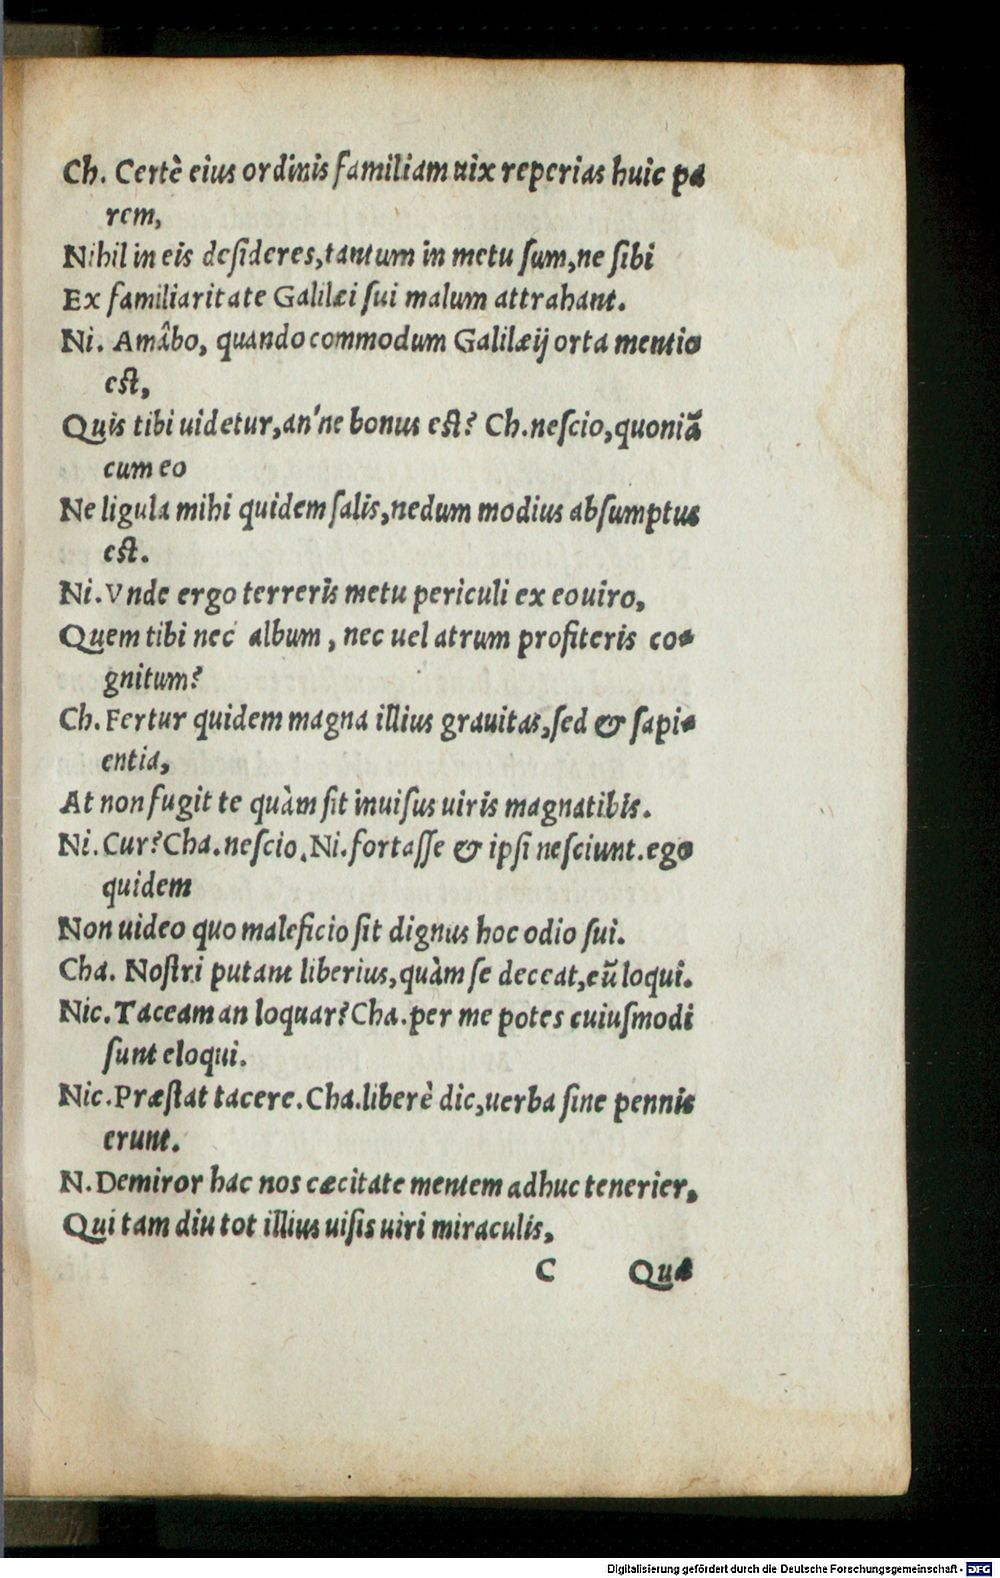 Ch. Certè eius ordinis familiam uix reperias huic pa
rem,
Nihil in eis desideres, tantum in metu sum, ne sibi
Ex familiaritate Galilæi sui malum attrahant.
Ni. Amâbo, quando commodum Galilæij orta mentio
est,
Quis tibi uidetur, an'ne bonus est? Ch. nescio, quoniã
cum eo
Ne ligula mihi quidem salis, nedum modius absumptus
est.
Ni. Vnde ergo terreris metu periculi ex eo uiro,
Quem tibi nec album, nec uel atrum profiteris co-
gnitum?
Ch. Fertur quidem magna illius grauitas, sed & sapi-
entia,
At non fugit te quàm sit inuisus uiris magnatibis.
Ni. Cur? Cha. nescio. Ni. fortasse & ipsi nesciunt. ego
quidem
Non uideo quo maleficio sit dignus hoc odio sui.
Cha. Nostri putant liberius, quàm se deceat, eũ loqui.
Nic. Taceam an loquar? Cha. per me potes cuiusmodi
sunt eloqui.
Nic. Præstat tacere. Cha. liberè dic, uerba sine pennis
erunt.
N. Demiror hac nos cæcitate mentem adhuc tenerier,
Qui tam diu tot illius uisis uiri miraculis,
C Quæ
Digitalisierung gefördert durch die Deutsche Forschungsgemeinschaft - DFG